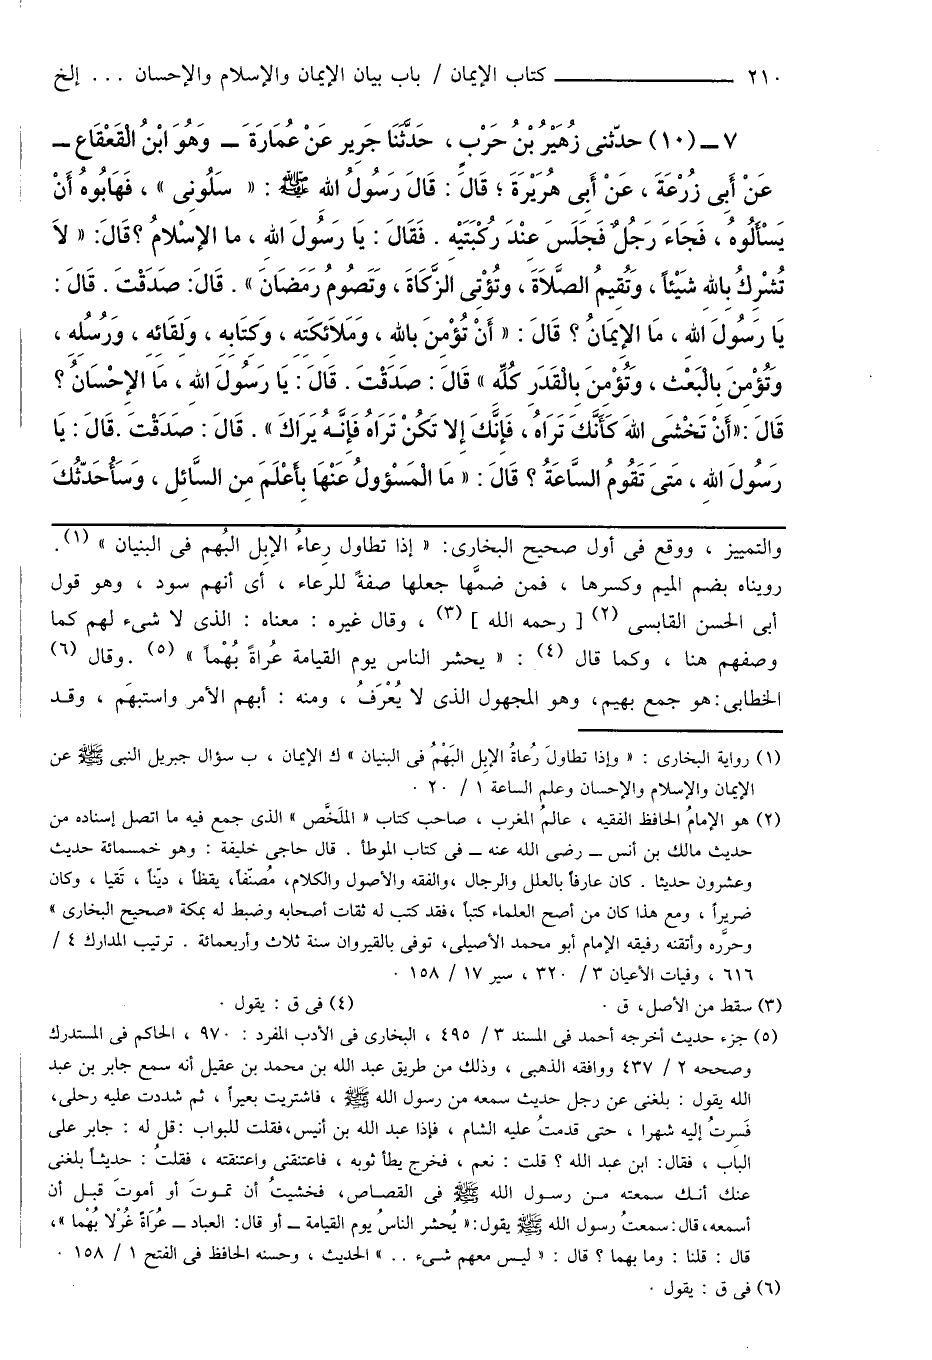 ٢١٠ ــــــــــــــــ كتاب الإيمان / باب بيان الإيمان والإسلام والإحسان ... إلخ
٧ ــ (١٠) حدّثنى زُهَيْرُ بْنُ حَرْبٍ ، حَدَّثَنَا جَرِير عَنْ عُمَارَةَ ــ وَهُوَ ابْنُ الْقَعْقَاعِ ــ
عَنْ أَبِى زُرْعَةَ ، عَنْ أَبِى هُرَيْرَةَ ؛ قَالَ : قَالَ رَسُولُ اللهِ ﷺ : « سَلُونِى » ، فَهَابُوهُ أَنْ
يَسْأَلُوهُ ، فَجَاءَ رَجُلٌ فَجَلَسَ عِنْدَ رُكْبَتَيْهِ . فَقَالَ : يا رَسُولَ اللهِ ، ما الإسْلامُ ؟ قَالَ: « لاَ
تُشْرِكُ بِاللهِ شَيْئاً ، وَتُقِيمُ الصَّلاَةَ ، وَتُؤْتِى الزَّكَاةَ ، وَتَصُومُ رَمَضَانَ » . قَالَ: صَدَقْتَ . قَالَ :
يَا رَسُولَ اللهِ ، مَا الإيمَانُ ؟ قَالَ : « أَنْ تُؤْمِنَ بِاللهِ ، وَمَلاَئِكَتِهِ ، وَكِتَابِهِ ، وَلِقَائِهِ ، وَرُسُلِهِ ،
وَتُؤْمِنَ بِالْبَعْثِ ، وَتُؤْمِنَ بِالْقَدَرِ كُلِّهِ » قَالَ : صَدَقْتَ . قَالَ : يَا رَسُولَ اللهِ ، مَا الإِحْسَانُ ؟
قَالَ :«أَنْ تَخْشَى اللهَ كَأَنَّكَ تَرَاهُ ، فَإِنَّكَ إِلا تَكُنْ تَرَاهُ فَإِنَّهُ يَرَاكَ » . قَالَ : صَدَقْتَ .قَالَ : يا
رَسُولَ اللهِ ، مَتىَ تَقُومُ السَّاعَةُ ؟ قَالَ : « مَا الْمَسْؤُولُ عَنْهَا بِأَعْلَمَ مِنَ السَّائِلِ ، وَسَأُحَدِّثُكَ
والتمييز ، ووقع فى أول صحيح البخارى: « إذا تطاول رِعاءُ الإبِلِ البُهم فى البنيان » (١).
رويناه بضم الميم وكسرها ، فمن ضمَّها جعلها صفةً للرعاء ، أى أنهم سود ، وهو قول
أبى الحسن القابسى (٢) [ رحمه الله ] (٣) ، وقال غيره : معناه : الذى لا شىء لهم كما
وصفهم هنا ، وكما قال (٤) : « يحشر الناس يوم القيامة عُراةً بُهْماً » (٥) .وقال (٦)
الخطابى:هو جمع بهيم، وهو المجهول الذى لا يُعْرَفُ ، ومنه : أبهم الأمر واستبهَم ، وقد
(١) رواية البخارى : « وإذا تطاولَ رُعاةُ الإِبِل البَهْمُ فى البنيان » ك الإيمان ، ب سؤال جبريل النبى ﷺ عن
الإيمان والإسلام والإحسان وعلم الساعة ١ / ٢٠ .
(٢) هو الإمامُ الحافظ الفقيه ، عالمُ المغرب ، صاحب كتاب « الملَخَّص » الذى جمع فيه ما اتصل إسناده من
حديث مالك بن أنس ــ رضى الله عنه ــ فى كتاب الموطأ . قال حاجى خليفة : وهو خمسمائة حديث
وعشرون حديثا . كان عارفاً بالعلل والرجال ،والفقه والأصول والكلام، مُصنّفاً، يقظاً ، ديّناً ، تَقيا ، وكان
ضريراً ، ومع هذا كان من أصح العلماء كتباً ،فقد كتب له ثقات أصحابه وضبط له بمكة «صحيح البخارى »
وحرَّره وأتقنه رفيقه الإمام أبو محمد الأصيلى، توفى بالقيروان سنة ثلاث وأربعمائة . ترتيب المدارك ٤ /
٦١٦ ، وفيات الأعيان ٣ / ٣٢٠ ، سير ١٧ / ١٥٨ .
(٣) سقط من الأصل، ق . (٤) فى ق : يقول .
(٥) جزء حديث أخرجه أحمد فى المسند ٣ / ٤٩٥ ، البخارى فى الأدب المفرد : ٩٧٠ ، الحاكم فى المستدرك
وصححه ٢ / ٤٣٧ ووافقه الذهبى ، وذلك من طريق عبد الله بن محمد بن عقيل أنه سمع جابر بن عبد
الله يقول : بلغنى عن رجل حديث سمعه من رسول الله ﷺ ، فاشتريت بعيراً ، ثم شددت عليه رحلى،
فَسِرتُ إليه شهرا ، حتى قدمتُ عليه الشام ، فإذا عبد الله بن أنيس،فقلت للبواب :قل له : جابر على
الباب ، فقال: ابن عبد الله ؟ قلت : نعم ، فخرج يطأ ثوبه ، فاعتنقنى واعتنقته ، فقلتُ : حديثاً بلغنى
عنك أنك سمعته من رسول الله ﷺ فى القصاص، فخشيتُ أن تموتَ أو أموتَ قبل أن
أسمعه،قال:سمعتُ رسول الله ﷺ يقول:« يُحشر الناسُ يوم القيامة ــ أو قال: العباد ــ عُرَاةً غُرْلا بُهْما »،
قال : قلنا : وما بهما ؟ قال : « ليس معهم شىء .. » الحديث ، وحسنه الحافظ فى الفتح ١ / ١٥٨ .
(٦) فى ق : يقول .